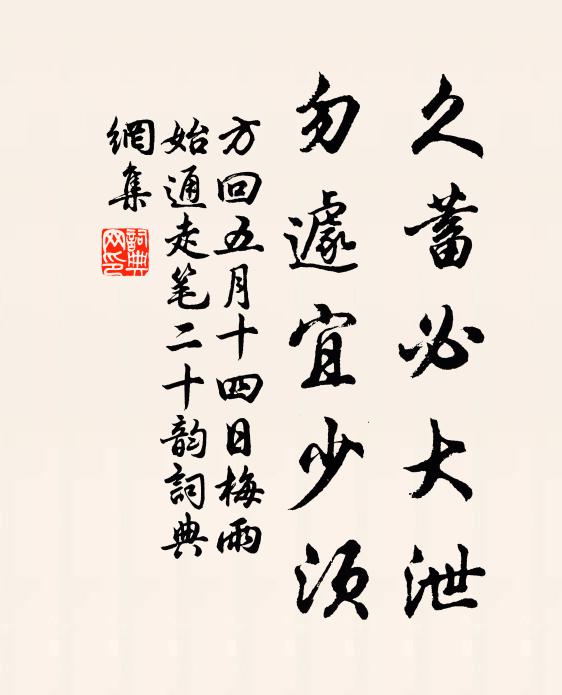 久蓄必大泄
勿遽宜少須
方回五月十四日梅雨
始通走笔二十韵詞典
網集
詞典
网印